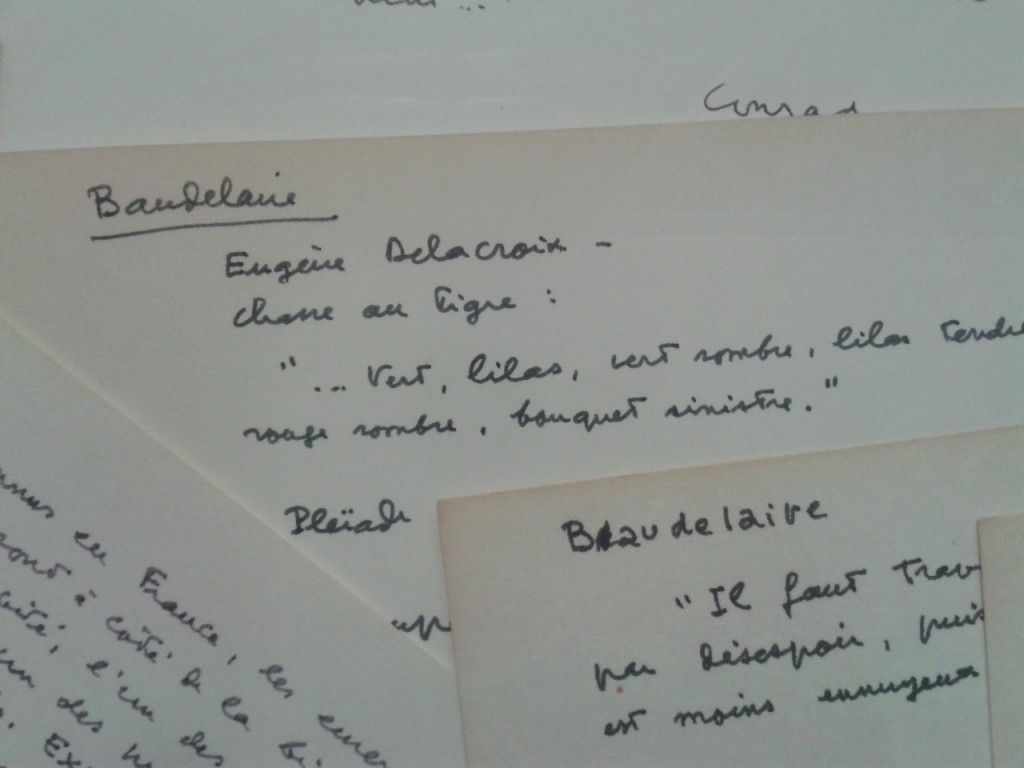 Conrad
Baudelaire
Eugène Delacroix -
chasse au tigre :
"... Vert, lilas, vert sombre, lilas tendre
rouge sombre, bouquet sinistre."
Pleïade
Baudelaire
"Il faut trav
par désespoir, puis
est moins ennuyeux
en France, les
sont à côté de la
l'un des
un des